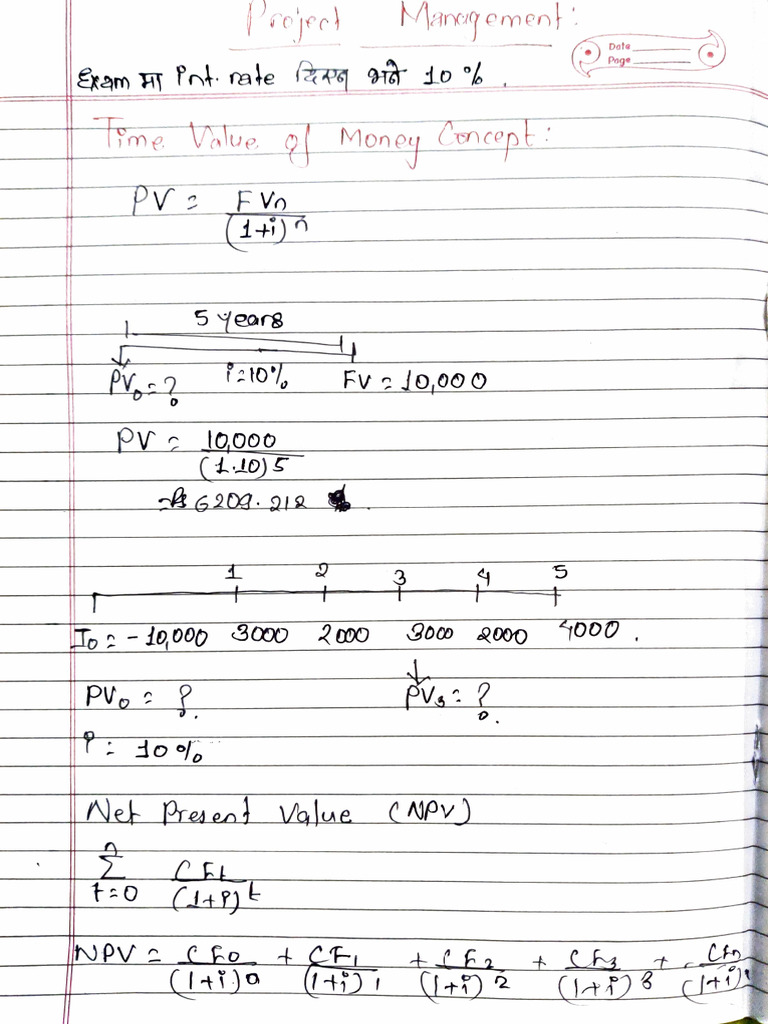 Project Management:
Date
Page
Exam मा Int. rate दिएन भने 10%.
Time Value of Money Concept:
PV = FVn / (1+i)^n
5 years
PV₀ = ? i=10% FV = 10,000
PV = 10,000 / (1.10)5
= Rs 6209.212
1 2 3 4 5
I₀ = -10,000 3000 2000 3000 2000 4000.
PV₀ = ? PV₃ = ?
i = 10%
Net Present Value (NPV)
n Σ t=0 CFt / (1+i)^t
NPV = CF₀ / (1+i)0 + CF₁ / (1+i)1 + CF₂ / (1+i)2 + CF₃ / (1+i)3 + CFn / (1+i)